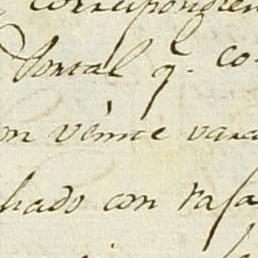 correspondien
Portal q. co
on veinte vara
hado con rafa